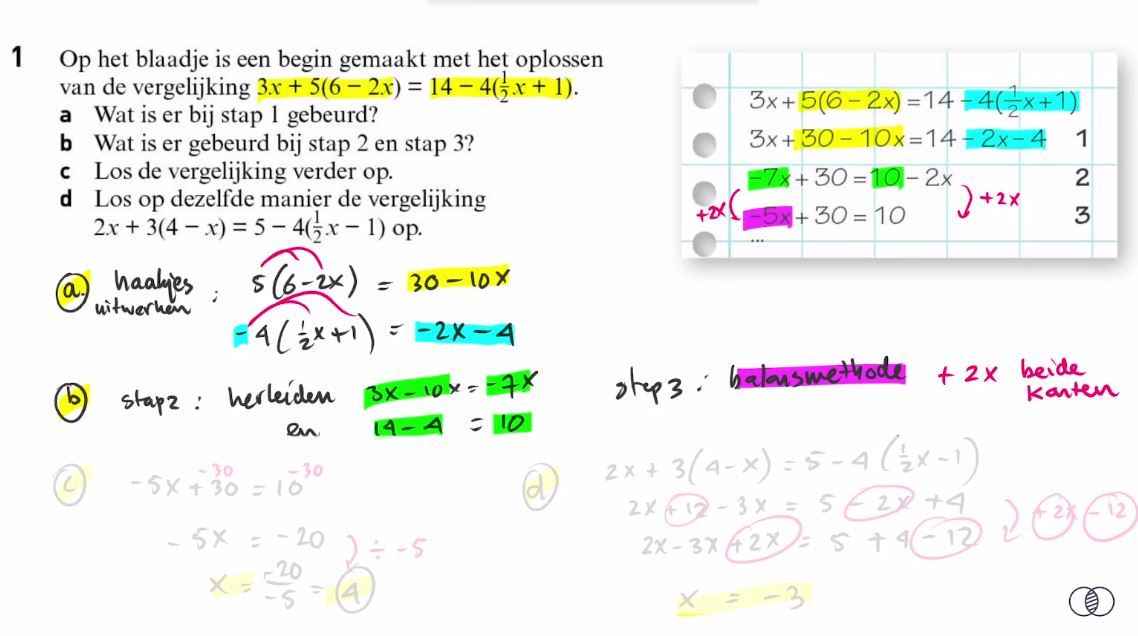 1 Op het blaadje is een begin gemaakt met het oplossen
van de vergelijking 3x + 5(6 − 2x) = 14 − 4(½x + 1).
a Wat is er bij stap 1 gebeurd?
b Wat is er gebeurd bij stap 2 en stap 3?
c Los de vergelijking verder op.
d Los op dezelfde manier de vergelijking
2x + 3(4 − x) = 5 − 4(½x − 1) op.
3x + 5(6 − 2x) = 14 − 4(½x + 1)
3x + 30 − 10x = 14 − 2x − 4 1
−7x + 30 = 10 − 2x 2
+2x −5x + 30 = 10 +2x 3
...
a. haakjes uitwerken : 5(6 − 2x) = 30 − 10x
−4(½x + 1) = −2x − 4
b) stap 2 : herleiden 3x − 10x = −7x
en 14 − 4 = 10
stap 3 : balansmethode + 2x beide kanten
c) −5x + 30 = 10
−30 −30
−5x = −20
÷ −5
x = −20/−5 = 4
d) 2x + 3(4 − x) = 5 − 4(½x − 1)
2x + 12 − 3x = 5 − 2x + 4
+ 2x − 12
2x − 3x + 2x = 5 + 4 − 12
x = −3